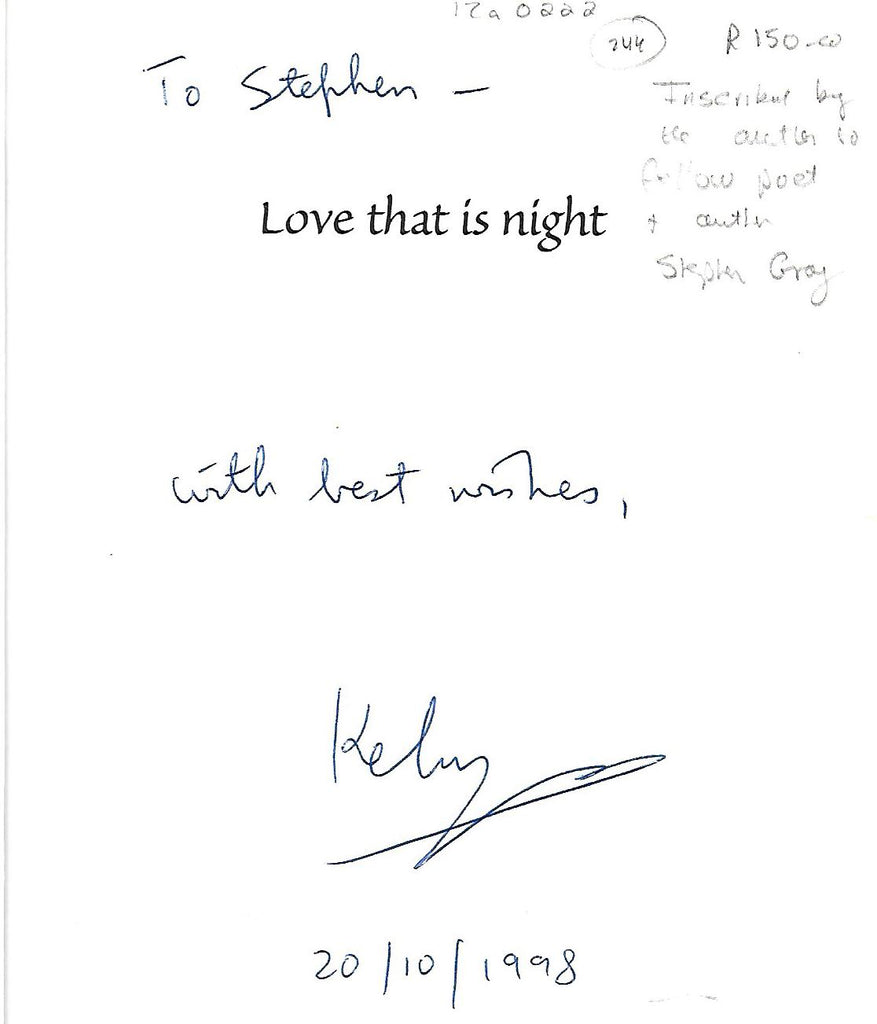 12a0222
244
R 150-00
To Stephen –
Inscribed by
the author to
fellow poet
+ author
Stephen Gray
Love that is night
with best wishes,
20/10/1998